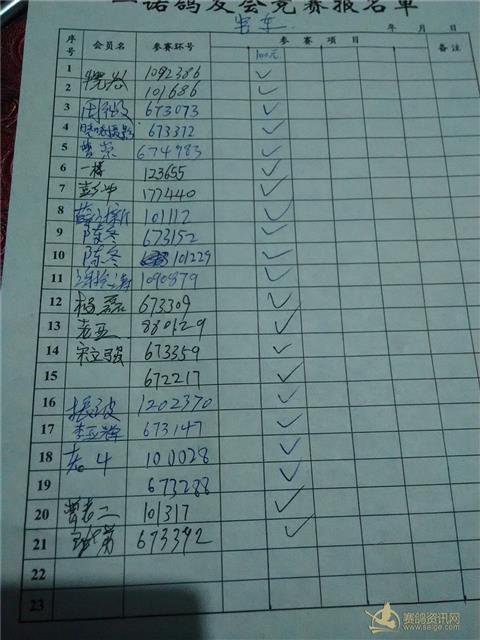 一诺鸽友会竞赛报名单
年 月 日
序号 会员名 参赛环号 参赛项目 备注
100元
1 1092386 ✓
2 101686 ✓
3 673073 ✓
4 673372 ✓
5 674983 ✓
6 一樽 123655 ✓
7 177440 ✓
8 101112 ✓
9 陈冬 673152 ✓
10 陈冬 101229 ✓
11 1090879 ✓
12 杨磊 673309 ✓
13 880129 ✓
14 宋立强 673359 ✓
15 672217 ✓
16 1202370 ✓
17 李亚辉 673147 ✓
18 100028 ✓
19 673288 ✓
20 曹老二 101317 ✓
21 673392 ✓
22
23
赛鸽资讯网
www.saige.com